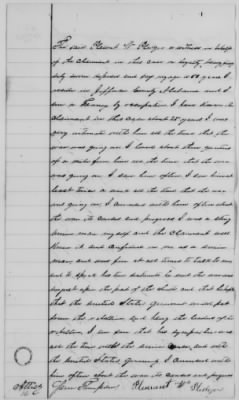 The said Pleasant W Pledger a witness in behalf
of the Claimant in this case
duly sworn deposes and says my age is 58 years I
reside in Jefferson County Alabama and I
am a Farmer by occupation I have known the
Claimant in this Case about 25 years I was
very intimate with him all the time that the
war was going on I lived about three quarters
of a mile from him all the time that the war
was going on I saw him often I saw him at
least twice a week all the time that the war
was going on I conversed with him often about
the war its causes and progress I was a strong
Union man myself and the Claimant well
knew it and confided in me as a Union
man and was free at all times to talk to me
and
upon the part of the South and that he hoped
that the United States Government would put
down the rebellion by the leaders of the
rebellion I am sure that his sympathies was
all the time with the Union Cause, and with
the United States Government I conversed with
him often about the war its causes and progress
Attest
Pleasant W Pledger